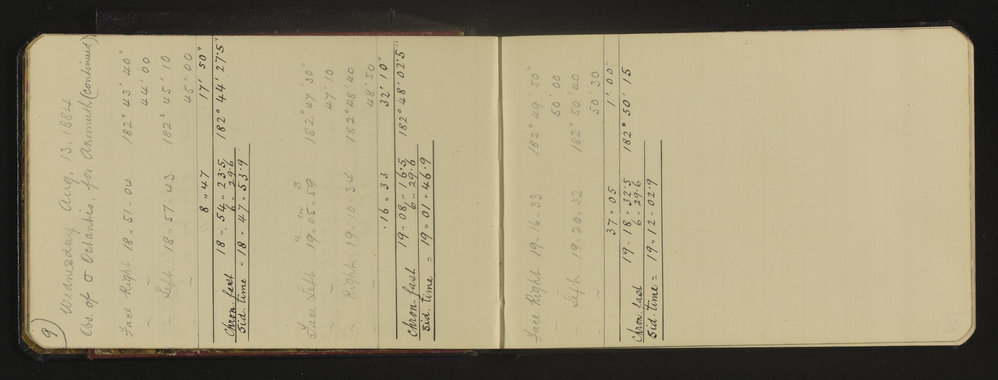 9
Wednesday Aug. 13. 1884
Obs. of σ Octantis. for Azimuth (continued)
Face Right 18 . 51 . 04 182° 43' 40"
~ ~ 44' 00
~ Left 18 " 57 . 43 182° 45' 10
~ ~ 45" 00
8 " 47 17' 50"
18 " 54 " 23.5 182° 44' 27.5"
Chron. fast 6 " 29.6
Sid. time = 18 " 47 " 53.9
h m s
Face Left 19 . 05 " 59 182° 47' 30"
~ ~ 47' 10
~ Right 19 . 10 . 34 182° 48' 40
~ 48' 50
. 16 " 33 32' 10"
19 " 08 " 16.5 182° 48' 02.5"
Chron. fast 6 " 29.6
Sid. time = 19 " 01 " 46.9
Face Right 19 . 16 " 33 182° 49' 50"
~ 50' 00
~ Left 19 . 20 " 32 182° 50' 40
~ 50' 30
37 " 05 1' 00"
19 " 18 " 32.5 182° 50' 15
Chron. fast 6 " 29.6
Sid. time = 19 " 12 " 02.9